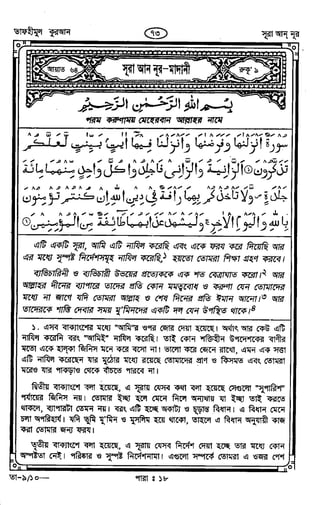 তাফহীমুল কুরআন
৭৩
সূরা আন নূর
আয়াত ৬৪
সূরা আন নূর-মাদানী
রুকূ ৯
بسم الله الرحمن الرحيم
পরম করুণাময় মেহেরবান আল্লাহর নামে
سُورَةٌ أَنْزَلْنٰهَا وَفَرَضْنٰهَا وَأَنْزَلْنَا فِيهَا آيٰتٍ بَيِّنٰتٍ لَّعَلَّكُمْ
تَذَكَّرُونَ ① الزَّانِيَةُ وَالزَّانِي فَاجْلِدُوا كُلَّ وَاحِدٍ مِّنْهُمَا مِائَةَ
جَلْدَةٍ وَّلَا تَأْخُذْكُمْ بِهِمَا رَأْفَةٌ فِي دِينِ اللهِ إِنْ كُنْتُمْ تُؤْمِنُونَ
بِاللهِ وَالْيَوْمِ الْآخِرِ وَلْيَشْهَدْ عَذَابَهُمَا طَائِفَةٌ مِّنَ الْمُؤْمِنِينَ ②
এটি একটি সূরা, আমি এটি নাযিল করেছি এবং একে ফরয করে দিয়েছি আর
এর মধ্যে সুস্পষ্ট নির্দেশসমূহ নাযিল করেছি, হয়তো তোমরা শিক্ষা গ্রহণ করবে।
ব্যভিচারিনী ও ব্যভিচারী উভয়ের প্রত্যেককে এক শত বেত্রাঘাত করো। আর
আল্লাহর দীনের ব্যাপারে তাদের প্রতি কোন মমত্ববোধ ও করুণা যেন তোমাদের
মধ্যে না জাগে যদি তোমরা আল্লাহ ও শেষ দিনের প্রতি ঈমান আনো। আর
তাদেরকে শাস্তি দেবার সময় মু'মিনদের একটি দল যেন উপস্থিত থাকে।
১. এসব বাক্যাংশের মধ্যে "আমি"র ওপর জোর দেয়া হয়েছে। অর্থাৎ আর কেউ এটি
নাযিল করেনি বরং "আমিই" নাযিল করেছি। তাই কোন শক্তিহীন উপদেশকের বাণীর
মতো একে হালকা জিনিস মনে করে বসো না। ভালো করে জেনে রাখো, এমন এক সত্তা
এটি নাযিল করেছেন যার মুঠোর মধ্যে রয়েছে তোমাদের প্রাণ ও কিসমত এবং তোমরা
মরেও যার পাকড়াও থেকে বাঁচতে পারবে না।
দ্বিতীয় বাক্যাংশে বলা হয়েছে, এ সূরায় যেসব কথা বলা হয়েছে সেগুলো "সুপারিশ"
পর্যায়ের জিনিস নয়। তোমার ইচ্ছা হলে মেনে নিলে অন্যথায় যা ইচ্ছা তাই করতে
থাকলে, ব্যাপারটা তেমন নয়। বরং এটি হচ্ছে অকাট্য ও চূড়ান্ত বিধান। এ বিধান মেনে
চলা অপরিহার্য। যদি তুমি মু'মিন ও মুসলিম হয়ে থাকো, তাহলে এ বিধান অনুযায়ী কাজ
করা তোমার জন্য ফরয।
তৃতীয় বাক্যাংশে বলা হয়েছে, এ সূরায় যেসব নির্দেশ দেয়া হচ্ছে তার মধ্যে কোন
অস্পষ্টতা নেই। পরিষ্কার ও সুস্পষ্ট নির্দেশনামা। এগুলো সম্পর্কে তোমরা এ ওজর পেশ
তা-৯/১০—
পারা : ১৮